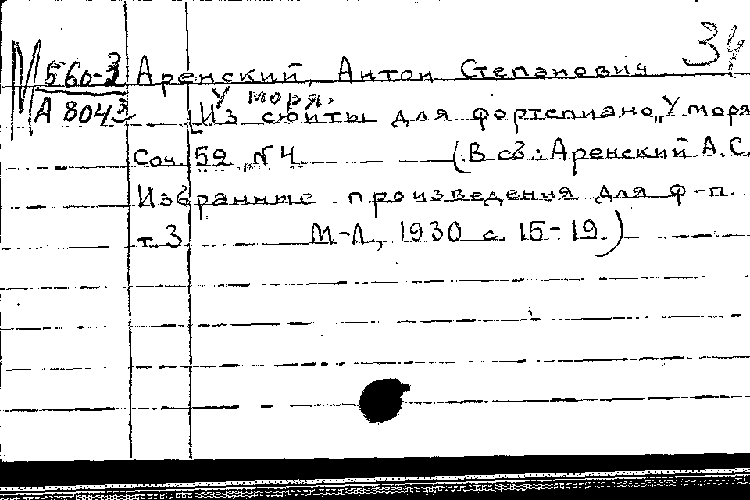 34
М 560-3 Аренский, Антон Степанович
У моря.
А 804 [Из сюиты для фортепиано „У моря
Соч. 52 № 4 (В сб.: Аренский А.С.
Избранные произведения для ф-п.
т. 3 М-Л, 1930 с. 15-19.)